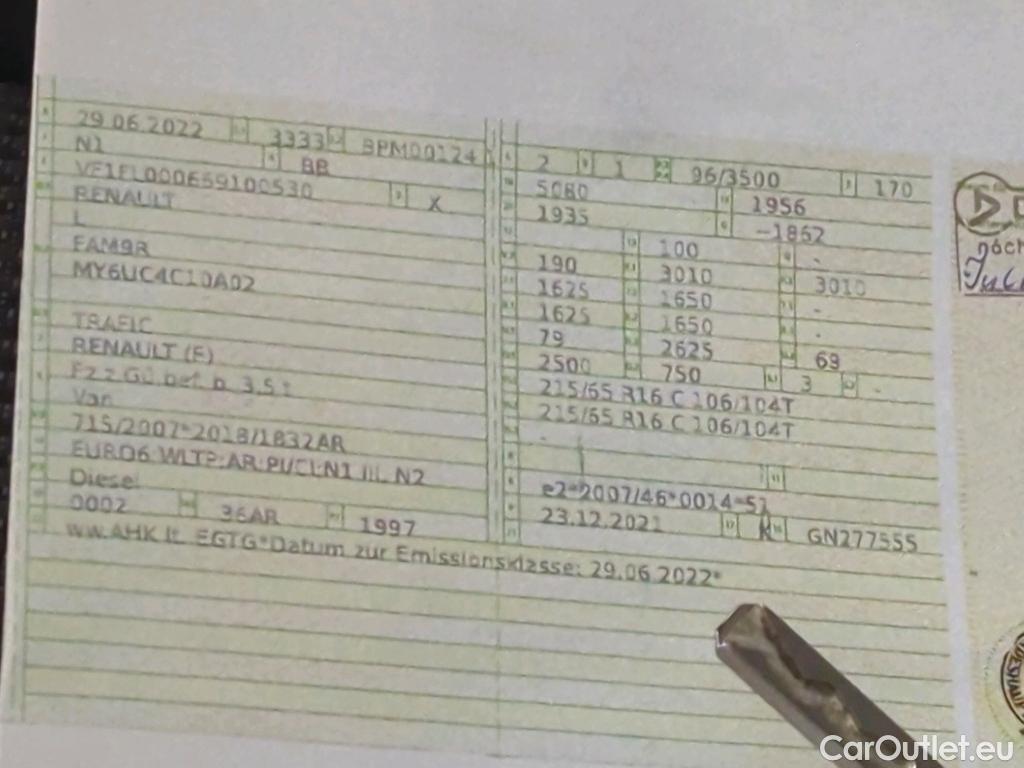 29.06.2022 3333 BPM00124
N1 BB
VF1FL000659100530 X
RENAULT
L
FAM9R
MY6UC4C10A02
TRAFIC
RENAULT (F)
Fz.z.Gü.bef.b. 3,5 t
Van
715/2007*2018/1832AR
EURO6 WLTP;AR;PI/CI;N1 III, N2
Diesel
0002 36AR 1997
ww.AHK lt. EGTG*Datum zur Emissionsklasse: 29.06.2022*
2 1 96/3500 170
5080 1956
1935 -1862
100 -
190 3010 3010
1625 1650 -
1625 1650 -
79 2625 69
2500 750 3 -
215/65 R16 C 106/104T
215/65 R16 C 106/104T
-
e2*2007/46*0014*51
23.12.2021 K GN277555
CarOutlet.eu